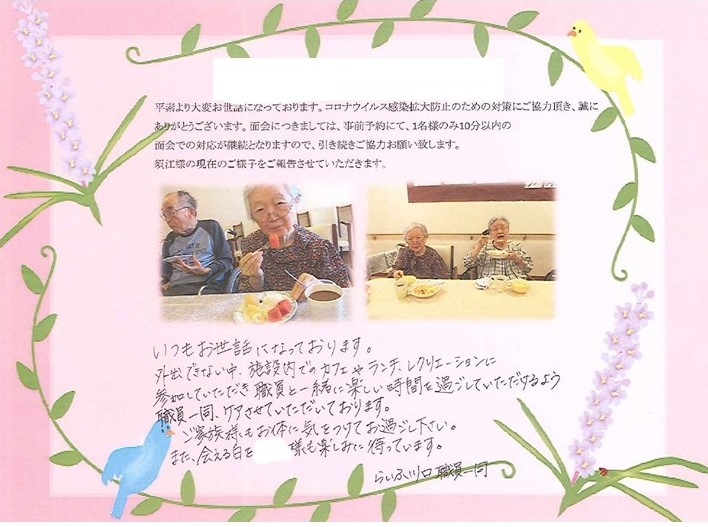 平素より大変お世話になっております。コロナウイルス感染拡大防止のための対策にご協力頂き、誠に
ありがとうございます。面会につきましては、事前予約にて、1名様のみ10分以内の
面会での対応が継続となりますので、引き続きご協力お願い致します。
須江様の現在のご様子をご報告させていただきます。
いつもお世話になっております。
外出できない中、施設内でのカフェやランチ、レクリエーションに
参加していただき職員と一緒に楽しい時間を過ごしていただけるよう
職員一同、ケアさせていただいております。
ご家族様もお体に気をつけてお過ごし下さい。
また、会える日を 様も楽しみに待っています。
らいふ川口 職員一同